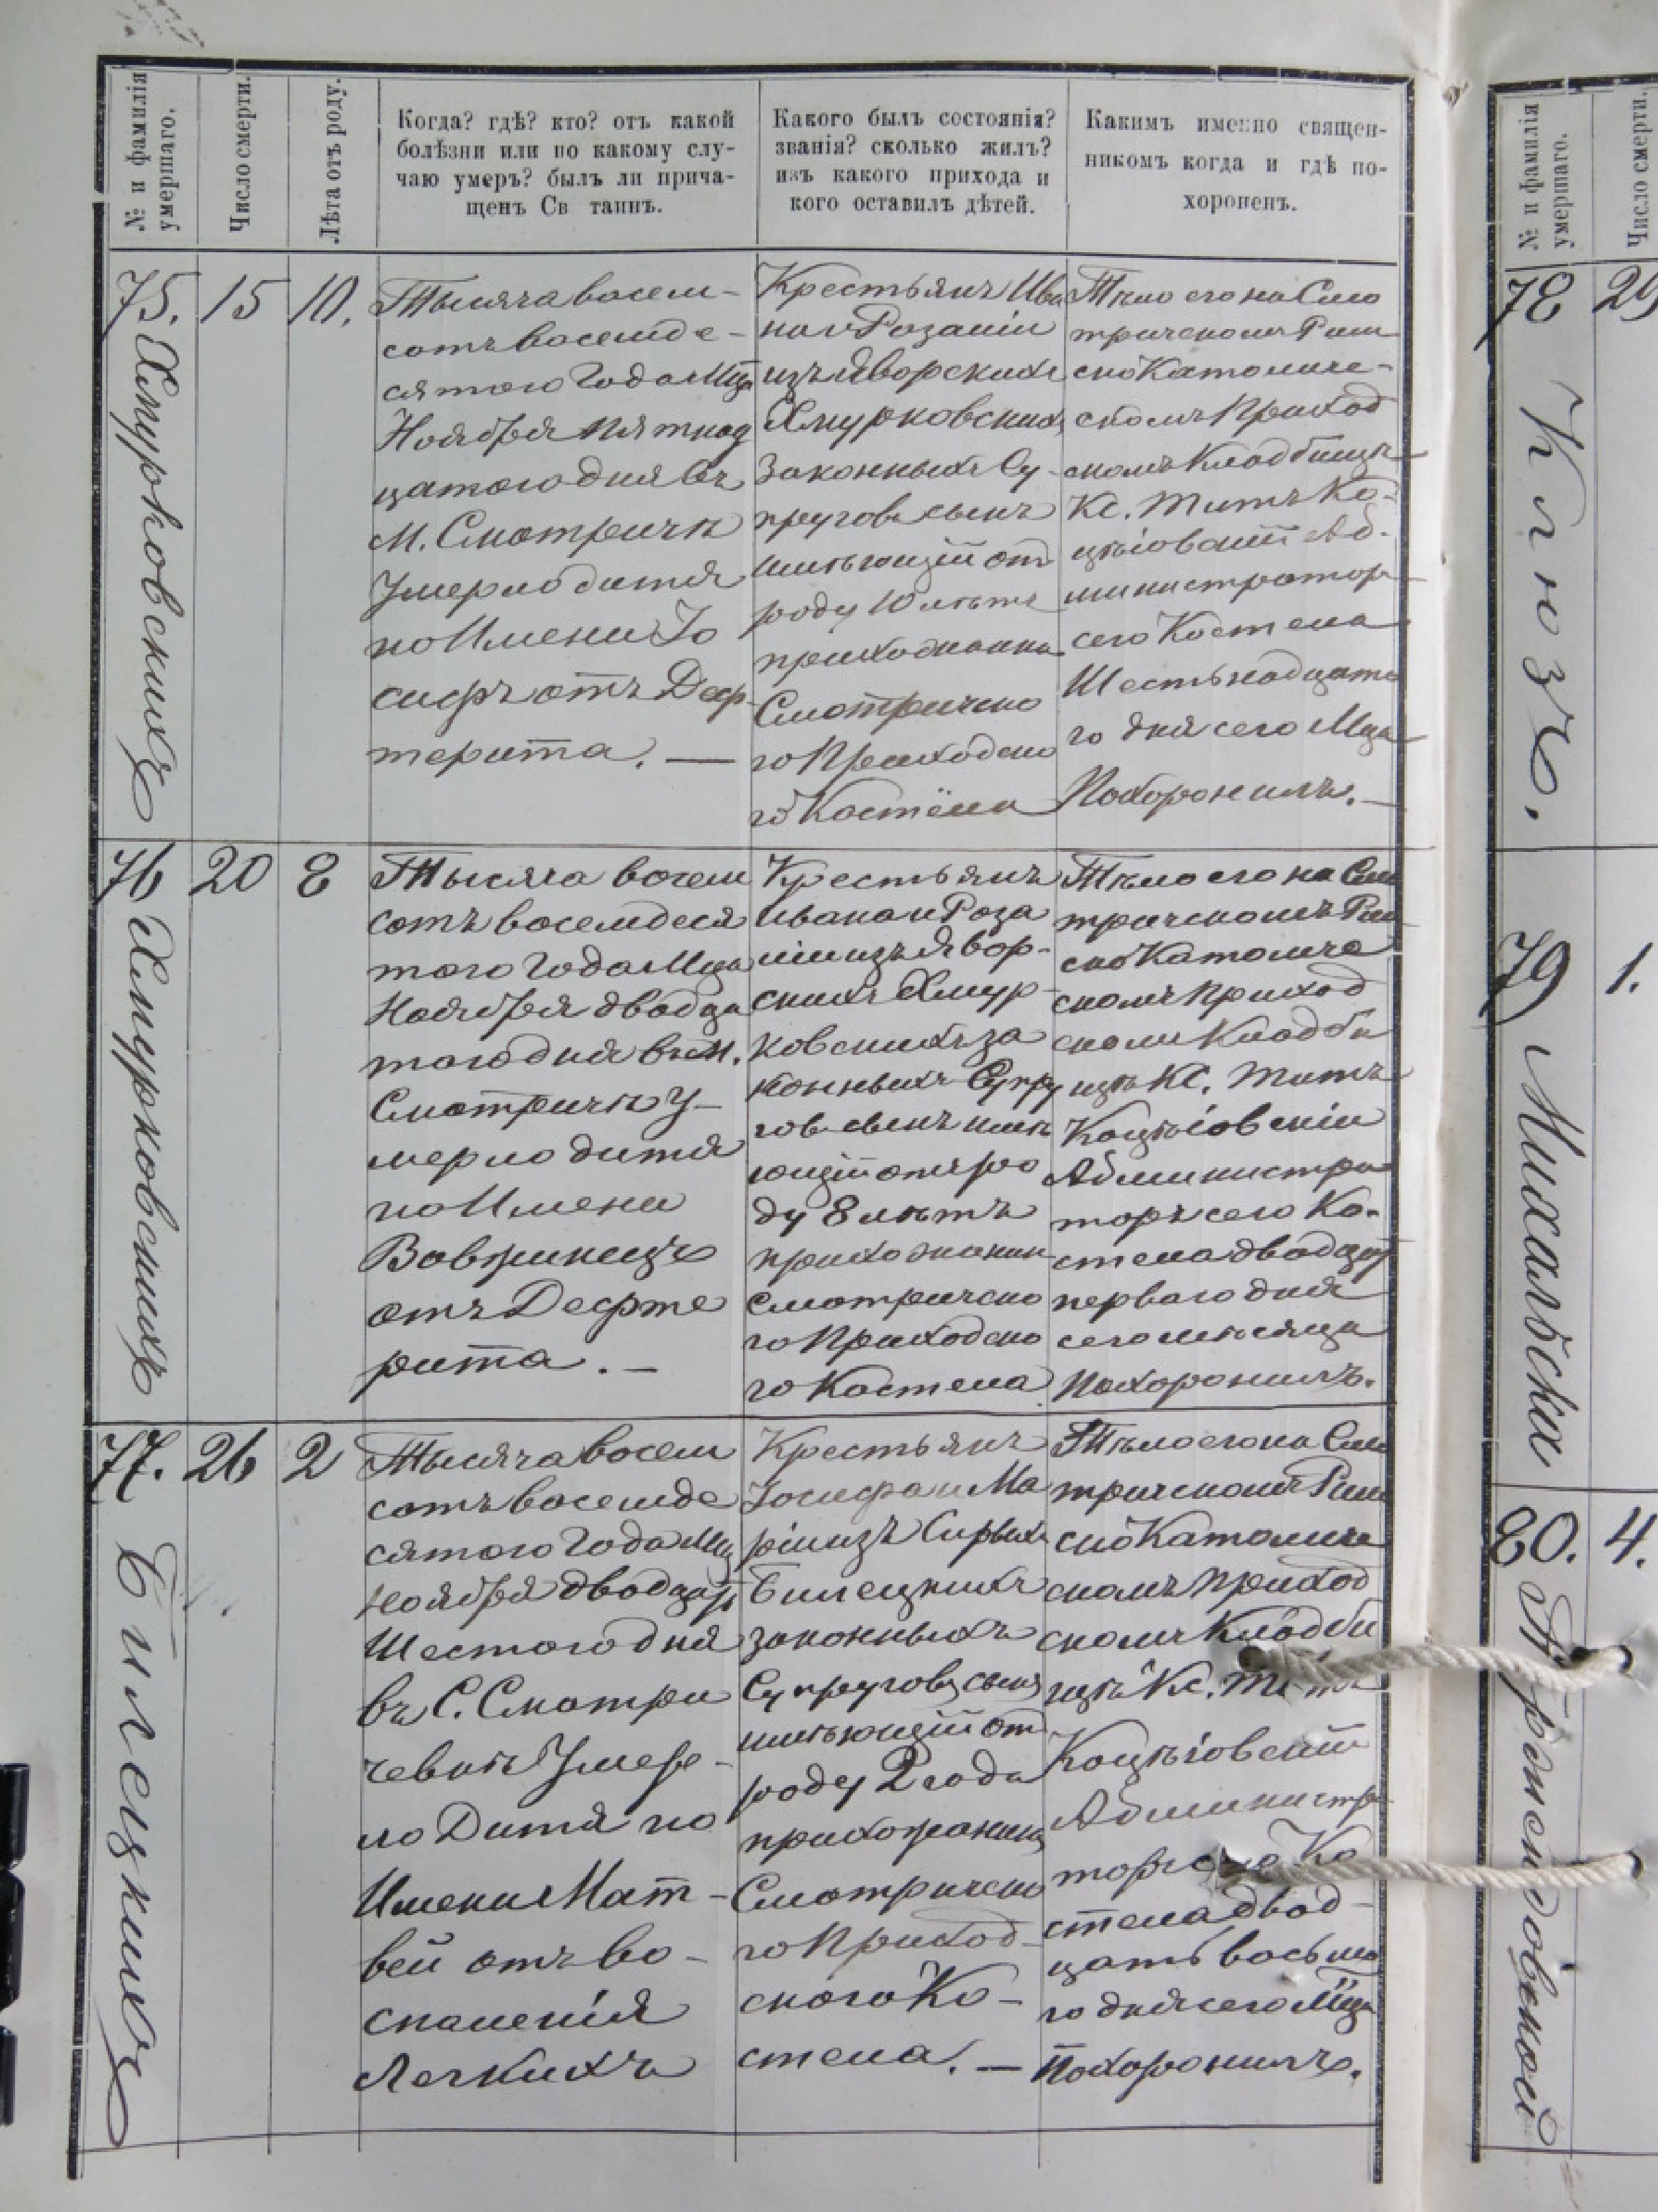 № и фамилія умершаго.
Число смерти.
Лѣта отъ роду.
Когда? гдѣ? кто? отъ какой
болѣзни или по какому слу-
чаю умеръ? былъ ли прича-
щенъ Св таинъ.
Какого былъ состоянія?
званія? сколько жилъ?
изъ какого прихода и
кого оставилъ дѣтей.
Каким именно священ-
никомъ когда и гдѣ по-
хороненъ.
75. Хмурковскихъ
15
10.
Тысяча восем-
сотъ восемде-
сятого Года Мца
Ноября пятнад
цатого дня въ
М. Смотричѣ
Умерло дитя
по Имени Іо
сифъ отъ Деф
терита. —
Крестьянъ Ива
на и Розаліи
изъ Яворскихъ
Хмурковскихъ
Законныхъ Су-
пруговъ сынъ
имѣющій от
роду 10 лѣтъ
прихожанина
Смотричско
го Приходско
го Костёла
Тѣло его на Смо
тричскомъ Рим
ско Католиче-
скомъ Приход
скомъ Кладбищѣ
Кс. Титъ Ко-
цѣіовскій Ад-
министраторъ
сего Костела
Шестьнадцато
го дня сего Мца
Похоронилъ. —
76 Хмурковскихъ
20
8
Тысяча восем
сотъ восемдеся
того Года Мца
Ноября двадца
того дня въ М.
Смотричѣ У-
мерло дитя
по Имени
Вавжинецъ
отъ Дефте
рита. —
Крестьянъ
Ивана и Роза
ліи изъ Явор-
скихъ Хмур-
ковскихъ за
конныхъ Супру
говъ сынъ имѣ
ющій отъ ро
ду 8 лѣтъ
прихожанин
Смотричско
го Приходско
го Костела
Тѣло его на Смо
тричскомъ Рим
ско Католиче
скомъ Приход
ском Кладби
щѣ Кс. Титъ
Коцѣіовскій
Администра
торъ сего Ко-
стела двадцат
перваго дня
сего мѣсяца
Похоронилъ.
77. Билецкихъ
26
2
Тысяча восем
сотъ восемде
сятого Года Мца
Ноября двадцать
Шестого дня
въ С. Смотри
чевкѣ Умер-
ло Дитя по
Имени Мат-
вей отъ Во-
спаленія
Легкихъ
Крестьянъ
Іосифа и Ма
ріи изъ Сирыхъ
Билецкихъ
законныхъ
Супруговъ сынъ
имѣющій от
роду 2 года
прихожанина
Смотричско
го Приход-
ского Ко-
стела. —
Тѣло его на Смо
тричскомъ Рим
ско Католиче
скомъ Приход
скомъ Кладби
щѣ Кс. Титъ
Коцѣіовскій
Администра
торъ сего Ко
стела двад-
цать восьмо
го дня сего Мца
Похоронилъ.
№ и фамилія умершаго.
Число смерти.
78 Клюзъ.
29
79 Михальски
1.
80.
4.